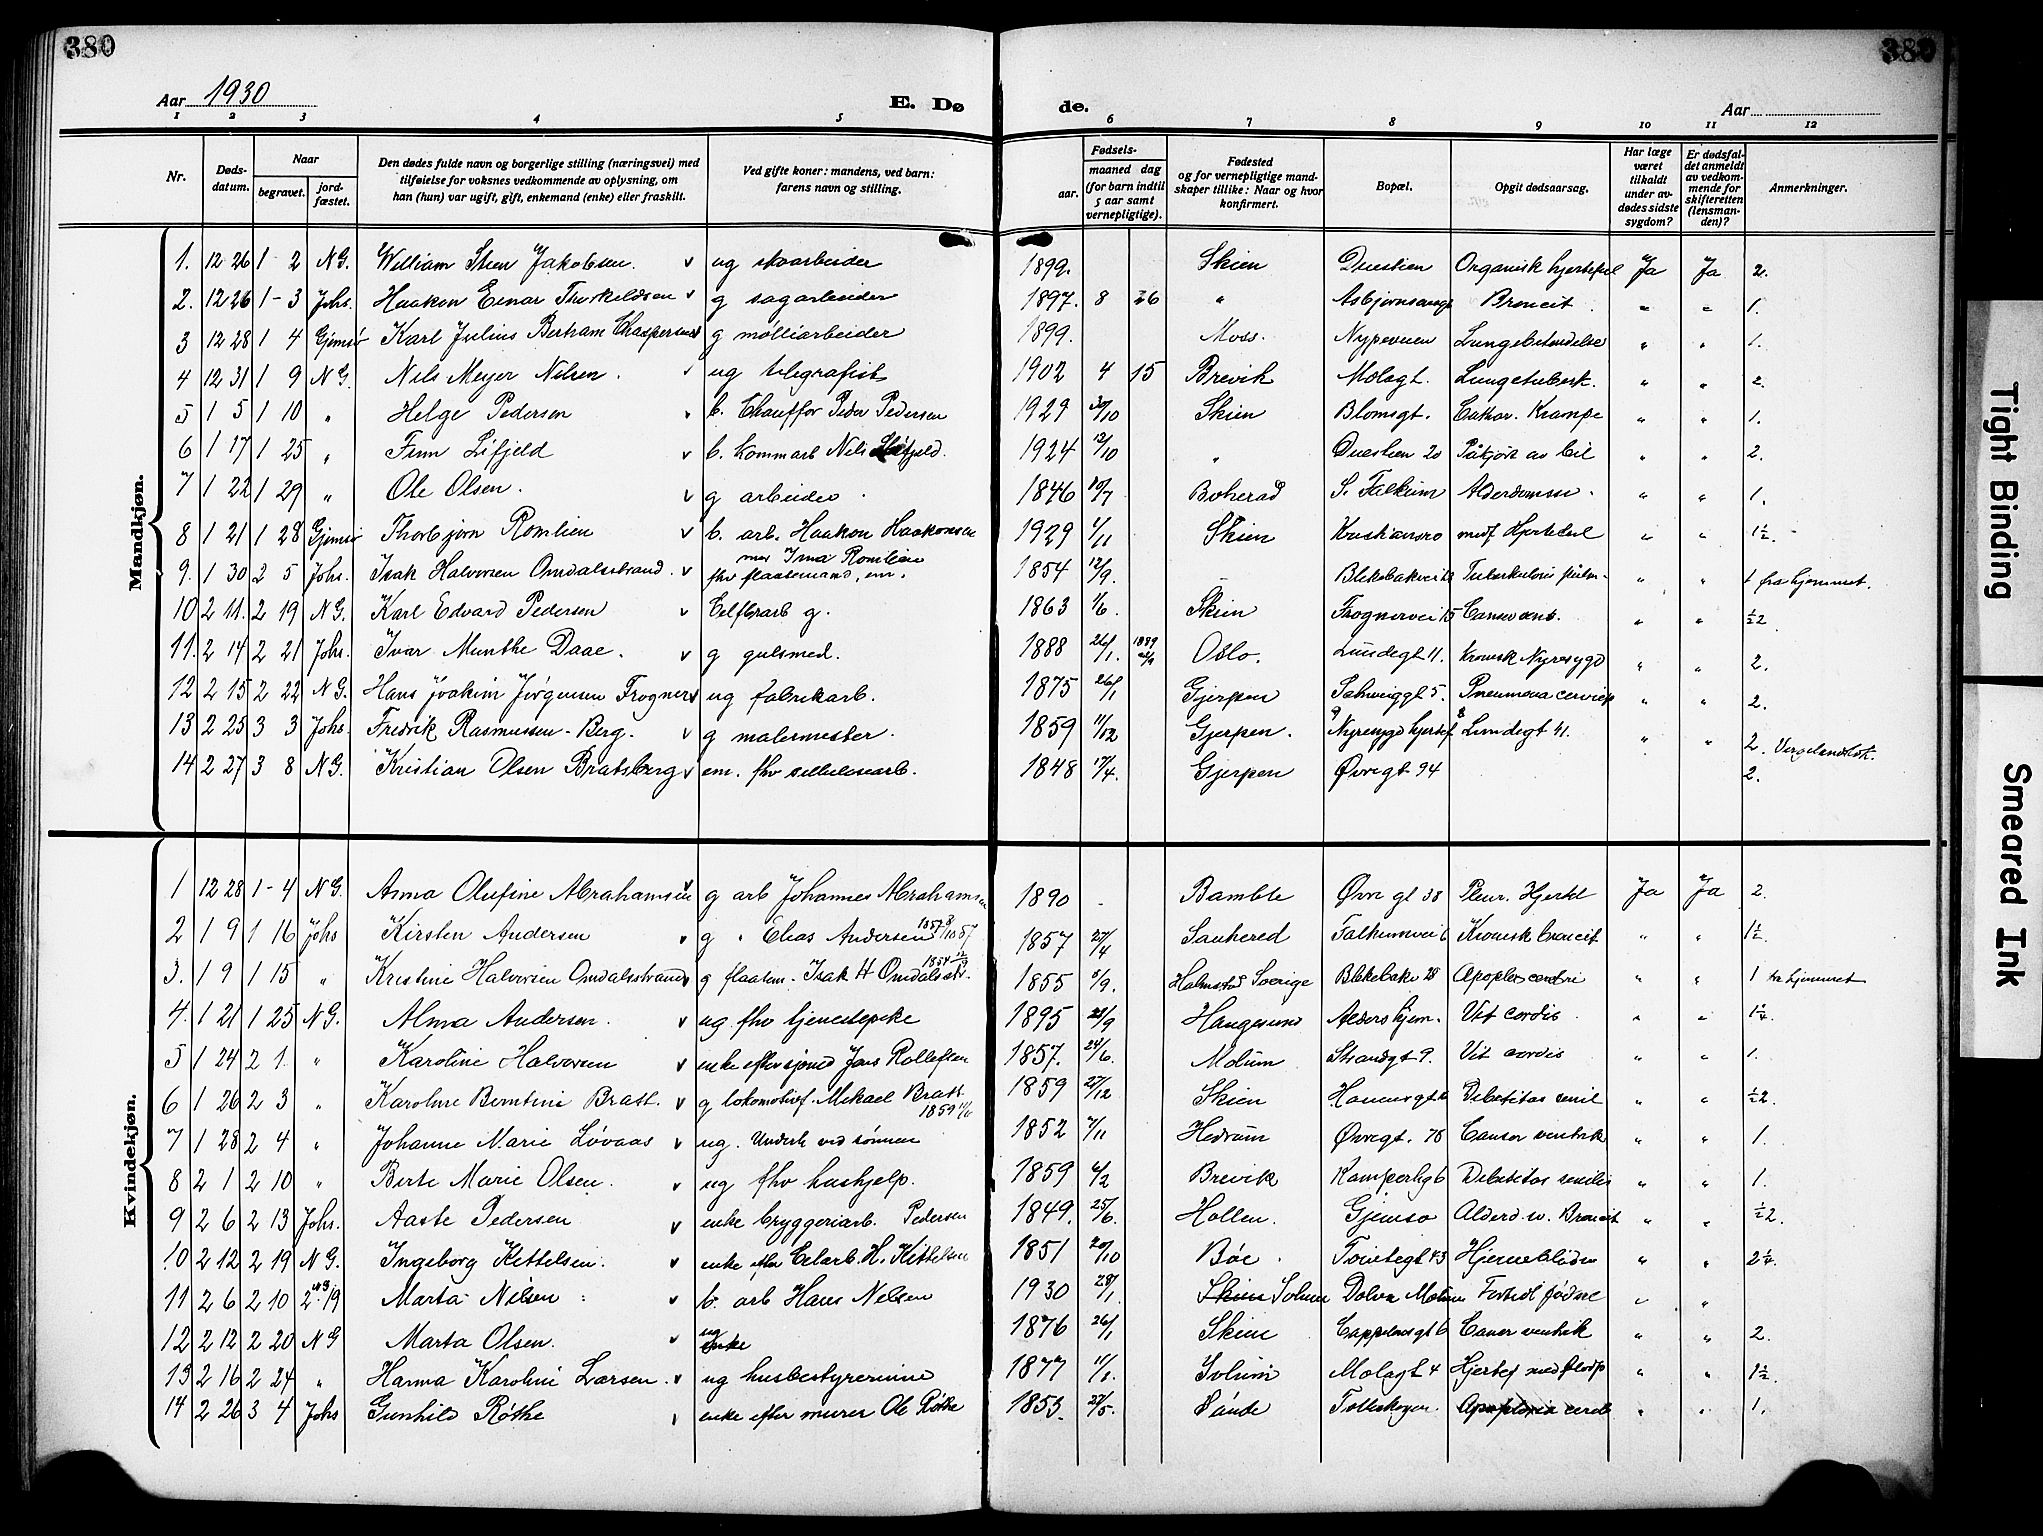 380
380
Aar 1930
E. Dø
de.
Aar
1 2 3 4 5 6 7 8 9 10 11 12
Nr.
Døds-datum.
Naar
begravet.
jord-fæstet.
Den dødes fulde navn og borgerlige stilling (næringsvei) med tilføielse for voksnes vedkommende av oplysning, om han (hun) var ugift, gift, enkemand (enke) eller fraskilt.
Ved gifte koner: mandens, ved barn: farens navn og stilling.
Fødsels-
aar.
maaned dag
(for barn indtil 5 aar samt vernepligtige).
Fødested
og for vernepligtige mandskaper tillike: Naar og hvor konfirmert.
Bopæl.
Opgit dødsaarsag.
Har læge været tilkaldt under avdødes sidste sygdom?
Er dødsfaldet anmeldt av vedkommende for skifteretten (lensmanden)?
Anmerkninger.
Mandkjøn.
1. 12 26 1-2 N G. William Sten Jakobsen. v ug skoarbeider 1899. Skien Duestien Organisk hjertefeil Ja Ja 2.
2. 12 26 1-3 Johs. Haakon Einar Thorkildsen v g sagarbeider 1897. 8 26 " Broncit " " 1.
3 12 28 1 4 Gjemsø Karl Julius Bertram g møllearbeider 1899. Moss. Nypeveien Lungebetendelse " " 1.
4 12 31 1 9 N G. Nils Meyer Nilsen. ug telegrafist 1902 4 15 Brevik Molagt. Lungetuberk. " " 2.
5 1 5 1 10 " Helge Pedersen b. Chauffør Peder Pedersen 1929 30/10 Skien Blomsgt. Cathar. Krampe " " 1.
6 1 17 1 25 " Finn Lifjeld v b. Kommarb Nils Lifjeld. 1924 12/10 " Duestien 20 Påkjørt av bil " " 2.
7 1 22 1 29 " Ole Olsen. v g arbeider 1846 Boherad S. Falkum " " 1.
8 1 21 1 28 Gjemsø Thorbjørn Romlien v b. arb. Haakon Haakonsen 1929 1/11 Skien Kristiansro medf Hjertefeil " " 1½.
mor Irma Romlien
9. 1 30 2 5 Johs. Isak Halvorsen Omdalsstrand. v fhv flaatemand, em. 1854 12/9. Tuberkulosis pulm. " " 1 fra hjemmet.
10 2 11. 2 19 N G. Karl Edvard Pedersen v Cellbrarb g. 1863 1/6. Skien Frognervei 15 " " ½2
11. 2 14 2 21 Johs. Ivar Munthe Daae. v g gulsmed. 1888 26/1. Oslo. Lundegt 11. Kronisk Nyresygd " " 2.
12 2 15 2 22 N G. Hans Joakim Jørgensen Frogner v ug fabrikarb. 1875 26/1 Gjerpen Schweiggt 5. " " 2.
13 2 25 3 3 Johs. Fredrik Rasmussen-Berg. v g malermester. 1859 11/12 Gjerpen. Nyresygd hjertef Lundegt 41. " " 2. Vergelandhsk.
14 2 27 3 8 N G. Kristian Olsen Bratsberg v em. fhv cellulosearb. 1848 17/4. Gjerpen Øvregt 94 2.
Kvindekjøn.
1 12 28 1-4 N G. Anna Olufine Abrahamsen g arb Johannes Abrahamsen 1890 - Bamble Øvre gt 38 Pleur. Hjertef Ja Ja 2.
2 1 9 1 16 Johs Kirsten Andersen v g " Elias Andersen 1857 27/4 Sauherad Falkumvei 6 Kronisk broncit " " 1½.
3. 1 9 1 15 " Kristine Halvorsen Omdalsstrand g flaatem. Isak H Omdalsstr. 1855 9. Holmstad Sverige Blekebakv 28 Apoplex cerebri " " 1 fra hjemmet
4. 1 21 1 25 N G. Alma Andersen. v ug fhv tjenestepike 1895 Haugesund Aldershjem. Vit cordis " " 1¼.
5 1 24 2 1. " Karoline Halvorsen v enke efter sjømd Jens Rollefsen 1857. 24/6. Molum Strandgt 9. Vit cordis " " 1.
6 1 26 2 3 " Karoline Berntine Bratt. v g lokomotivf. Mikael Bratt 1859 1859 27/12 Skien Debilitas senil " " ½2.
7 1 28 2 4 " Johanne Marie Løvaas v ug. Underh ved sønnen 1852 7/11 Hedrum Øvregt. 78 Cancer ventrik " " 1.
8 2 1 2 10 " Berte Marie Olsen. v ug fhv hushjelp. 1859 6/2 Brevik Debilitas senilis " " 1.
9 2 6 2 13 Johs. Aaste Pedersen v enke bryggeriarb. Pedersen 1849. 25/6. Hollen. Gjemsø Alderd. Broncit " " ½2.
10 2 12 2 19 N G. Ingeborg Kittelsen. v enke efter Celarb. H. Kittelsen 1851 20/10 Bøe. Torvtegt 43 Hjerneblødn " " 2¼.
11 2 6 2 10 Marta Nilsen v b. arb Hans Nelsen 1930 28/1. Skien Solum Dolva Molum Fortidl fødsel " "
12 2 12 2 20 N G Marta Olsen. v ug enke 1876 26/1 Skien Cappelensgt 6 Cancer ventrik " " 2.
13 2 16 2 24 " Hanna Karoline Larsen. v ug husbestyrerinne 1877 11/1. Solum Molagt 4 Hjertef med " " 1½.
14 2 26 3 4 Johs Gunhild Røthe enke efter murer Ole Røthe 1853. 27/5. Sande Follaskogen. Apoplexia cereb " " 1.
Tight Binding
Smeared Ink